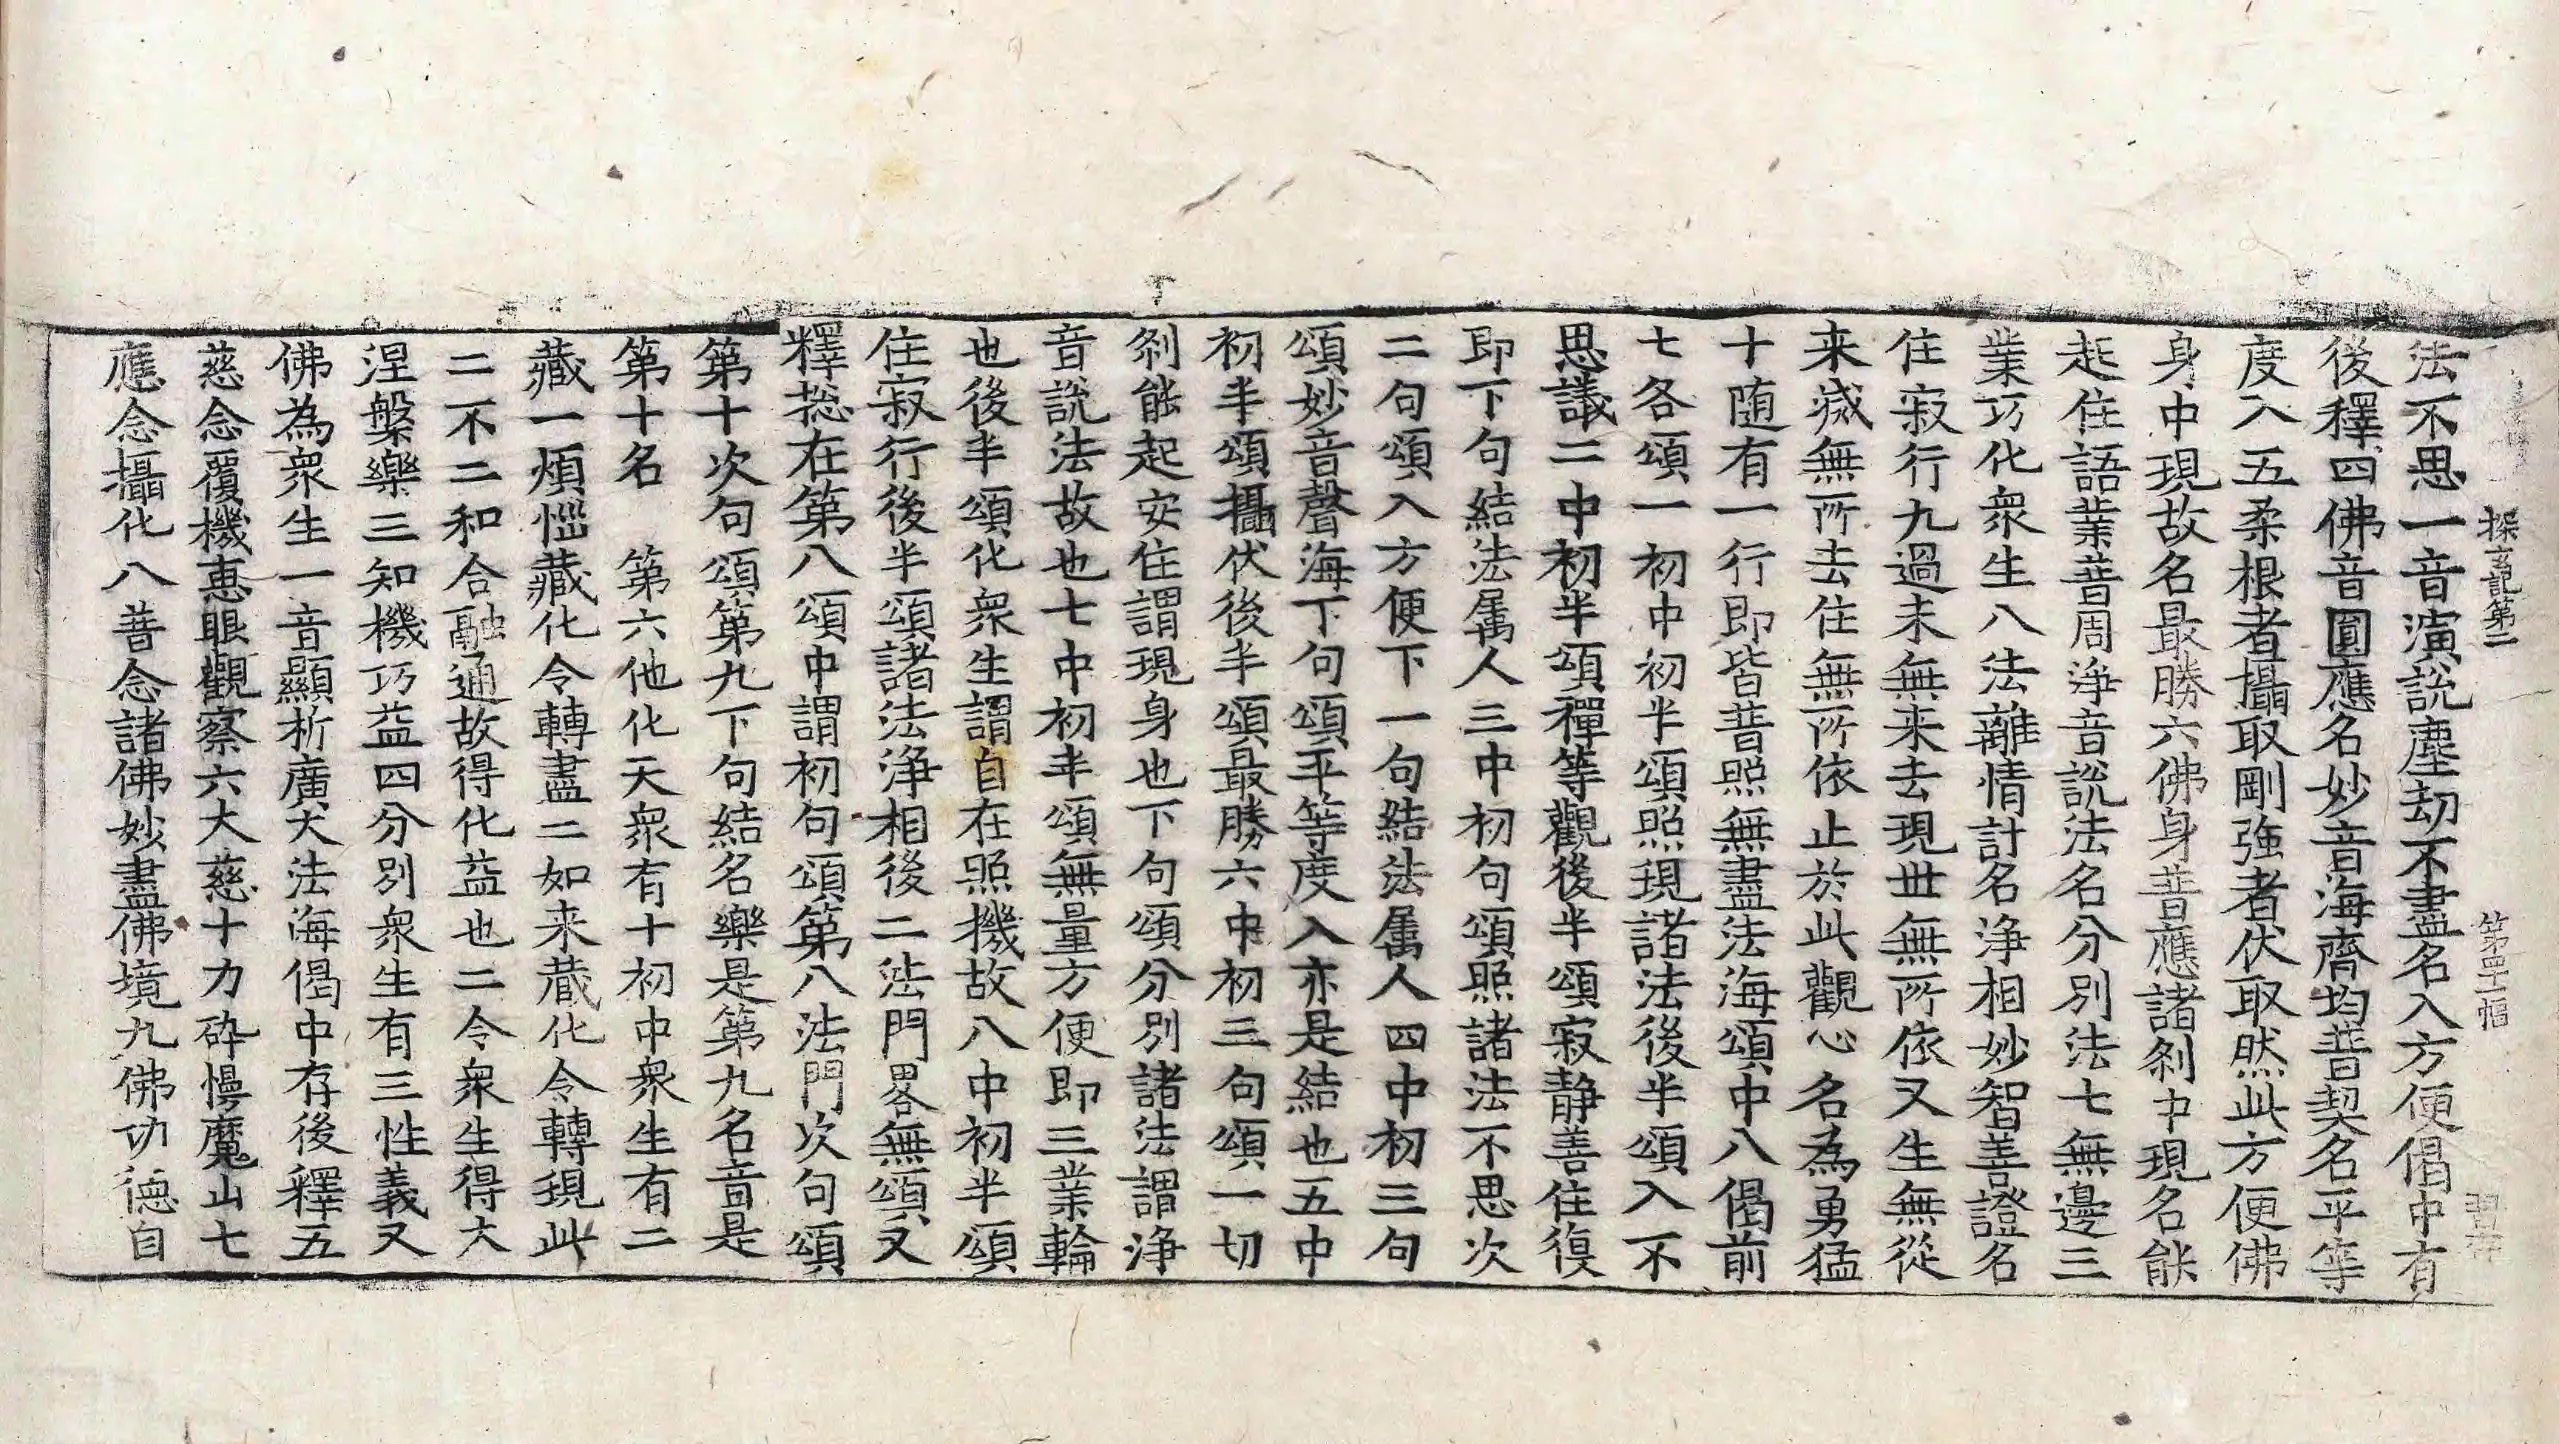 探玄記第二 第四十幅
法不思一音演說塵劫不盡名入方便偈中有
後釋四佛音圓應名妙音海齊均普契名平等
度入五柔根者攝取剛強者伏取然此方便佛
身中現故名最勝六佛身普應諸刹中現名能
起住語業普周淨音說法名分別法七無邊三
業巧化衆生八法離情計名淨相妙智善證名
住寂行九過未無来去現世無所依又生無從
来滅無所去住無所依止於此觀心名為勇猛
十随有一行即皆普照無盡法海頌中八偈前
七各頌一初中初半頌照現諸法後半頌入不
思議二中初半頌禪等觀後半頌寂静善住復
即下句結法属人三中初句頌照諸法不思次
二句頌入方便下一句結法属人四中初三句
頌妙音聲海下句頌平等度入亦是結也五中
初半頌攝伏後半頌最勝六中初三句頌一切
刹能起安住謂現身也下句頌分別諸法謂淨
音說法故也七中初半頌無量方便即三業輪
也後半頌化衆生謂自在照機故八中初半頌
住寂行後半頌諸法淨相後二法門畧無頌又
釋捴在第八頌中謂初句頌第八法門次句頌
第十次句頌第九下句結名樂是第九名音是
第十名　第六他化天衆有十初中衆生有二
藏一煩惱藏化令轉盡二如来藏化令轉現此
二不二和合融通故得化益也二令衆生得大
涅槃樂三知機巧益四分別衆生有三性義又
佛為衆生一音顯析廣大法海偈中存後釋五
慈念覆機恵眼觀察六大慈十力碎慢魔山七
應念攝化八普念諸佛妙盡佛境九佛功德自